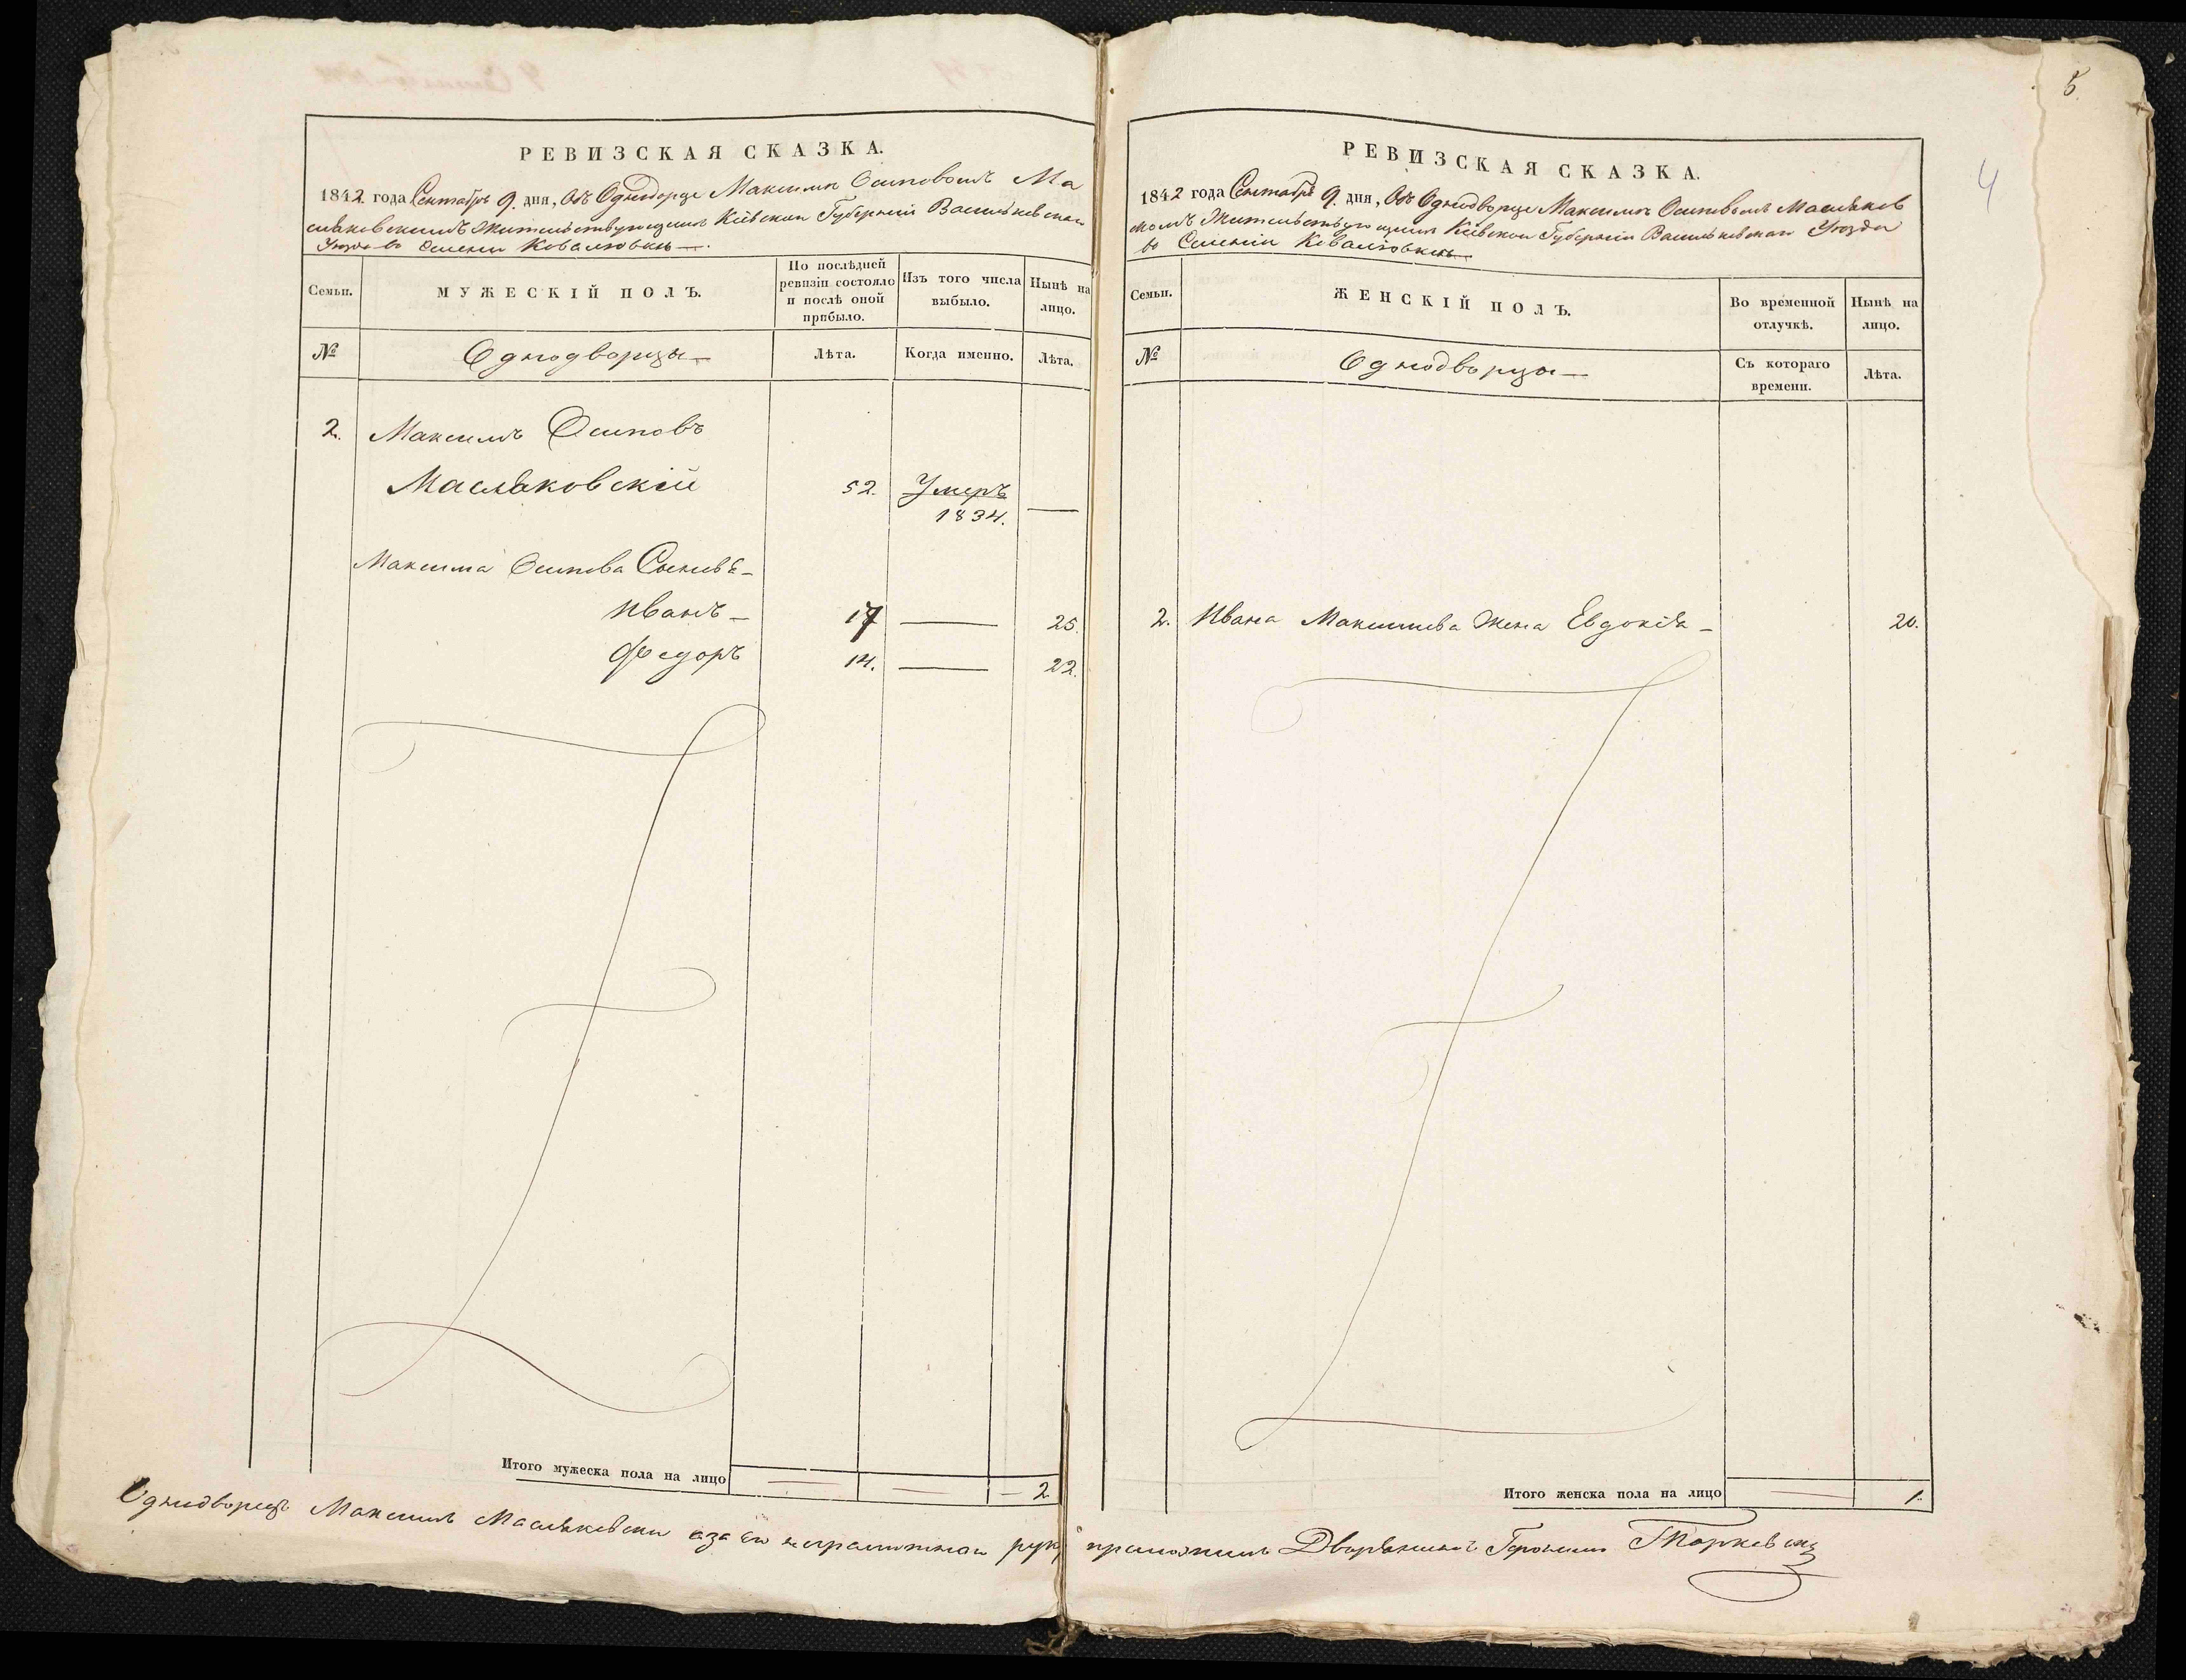 РЕВИЗСКАЯ СКАЗКА.
1842 года Сентября 9. дня, Объ Однодворце Максиме Осиповомъ Ма
сляковскимъ Жительствующимъ Кіевской Губерніи Васильковскаго
Уезда въ Селении Ковалювке
Семьи.
МУЖЕСКІЙ ПОЛЪ.
По послѣдней ревизіи состояло и послѣ оной прибыло.
Изъ того числа выбыло.
Нынѣ на лицо.
№
Однодворцы
Лѣта.
Когда именно.
Лѣта.
2. Максимъ Осиповъ
Масляковскій 52. Умеръ
1834. —
Максима Осипова Сыновья
Иванъ 17 — 25.
Федоръ 14. — 22.
Итого мужеска пола на лицо — — — 2
5.
4
РЕВИЗСКАЯ СКАЗКА.
1842 года Сентября 9. дня, Объ Однодворце Максиме Осиповомъ Масляков
скомъ Жительствующимъ Кіевской Губерніи Васильковскаго Уезда
въ Селеніи Ковалювке
Семьи.
ЖЕНСКІЙ ПОЛЪ.
Во временной отлучкѣ.
Нынѣ на лицо.
№
Однодворцы
Съ котораго времени.
Лѣта.
2. Ивана Максимова Жена Евдокія 20.
Итого женска пола на лицо — 1.
Однодворецъ Максимъ Масляковски а за его неграмотнаго руку приложилъ Дворянинъ